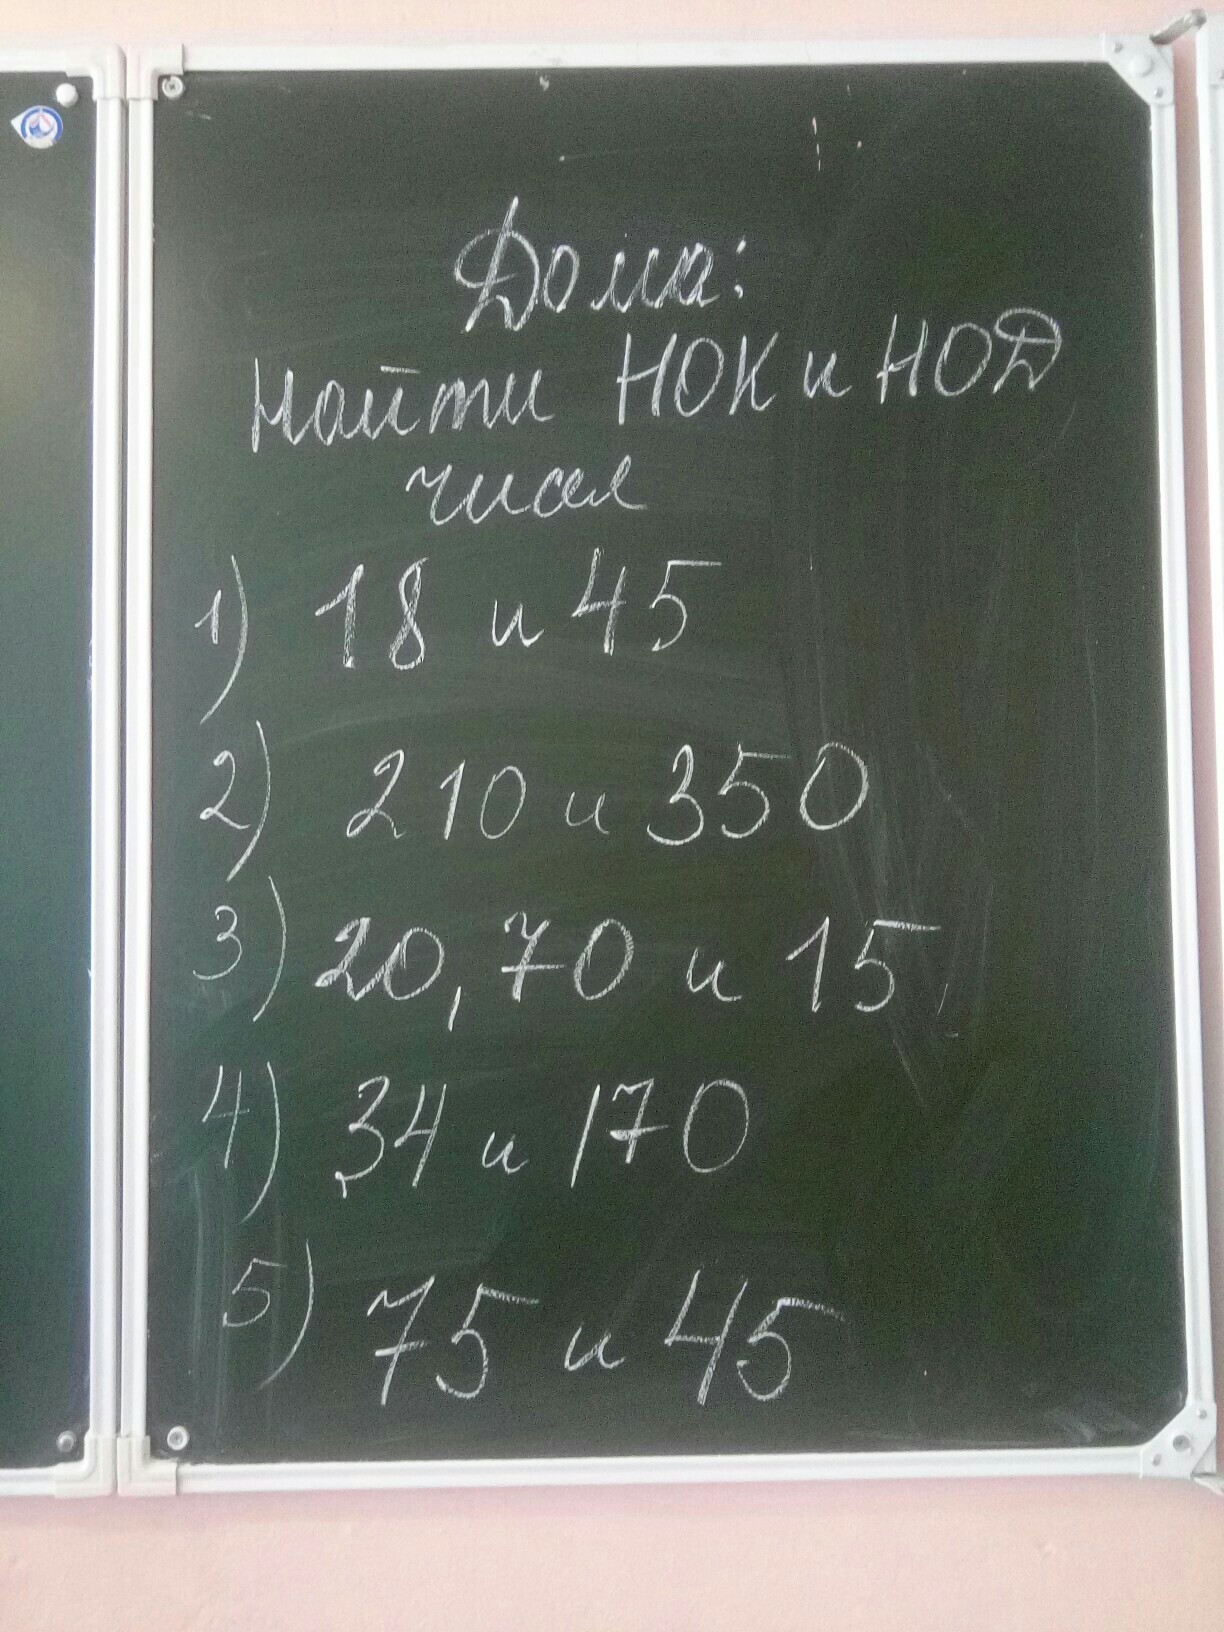 Дома:
Найти НОК и НОД
чисел
1) 18 и 45
2) 210 и 350
3) 20, 70 и 15
4) 34 и 170
5) 75 и 45